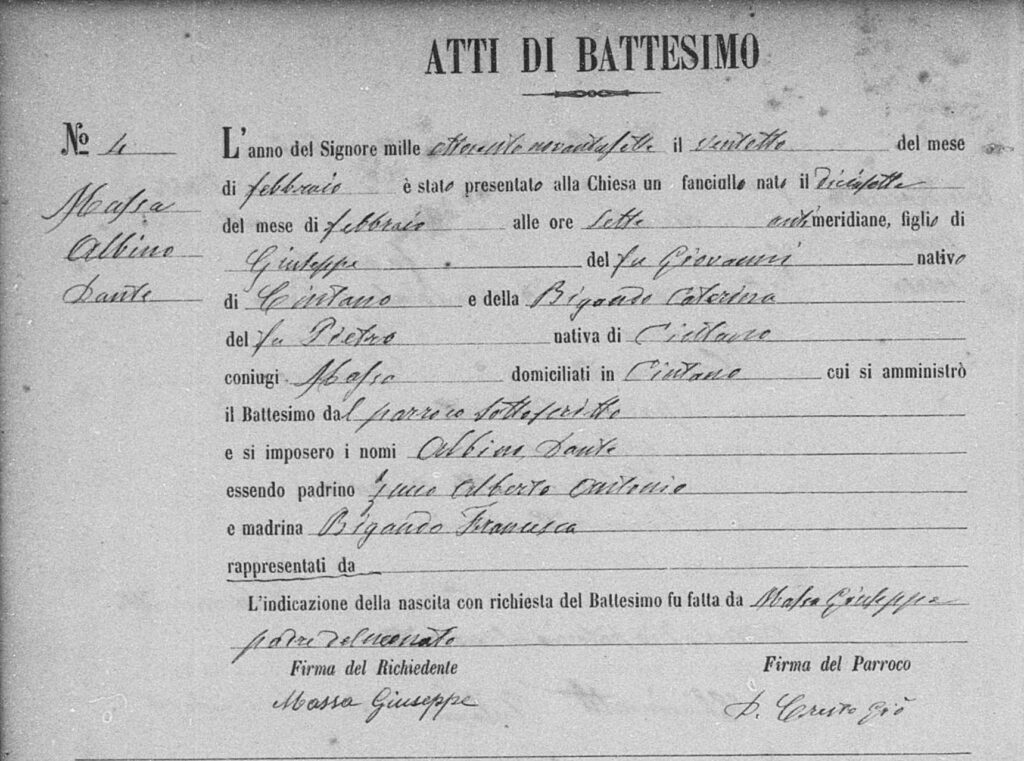 ATTI DI BATTESIMO
Nº 4
Massa
Albino
Dante
L'anno del Signore mille ottocento novantasette il ventotto del mese
di febbraio è stato presentato alla Chiesa un fanciullo nato il diciasette
del mese di febbraio alle ore sette antimeridiane, figlio di
Giuseppe del fu Giovanni nativo
di Cintano e della Bigando Caterina
del fu Pietro nativa di Cintano
coniugi Massa domiciliati in Cintano cui si amministrò
il Battesimo dal parroco sottoscritto
e si imposero i nomi Albino Dante
essendo padrino Alberto Antonio
e madrina Bigando Francesca
rappresentati da
L'indicazione della nascita con richiesta del Battesimo fu fatta da Massa Giuseppe
padre del neonato
Firma del Richiedente Firma del Parroco
Massa Giuseppe D. Cresto Giò